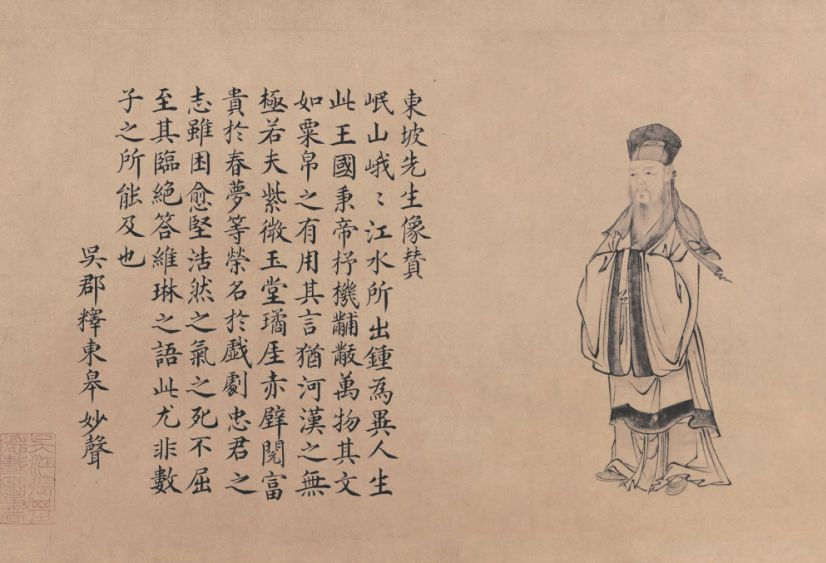 東坡先生像賛
岷山峨〻江水所出鍾為異人生
此王國秉帝杼機黼黻萬物其文
如粟帛之有用其言猶河漢之無
極若夫紫微玉堂璚厓赤壁閱富
貴於春夢等榮名於戲劇忠君之
志雖困愈堅浩然之氣之死不屈
至其臨絕答維琳之語此尤非數
子之所能及也
吳郡釋東皋妙聲